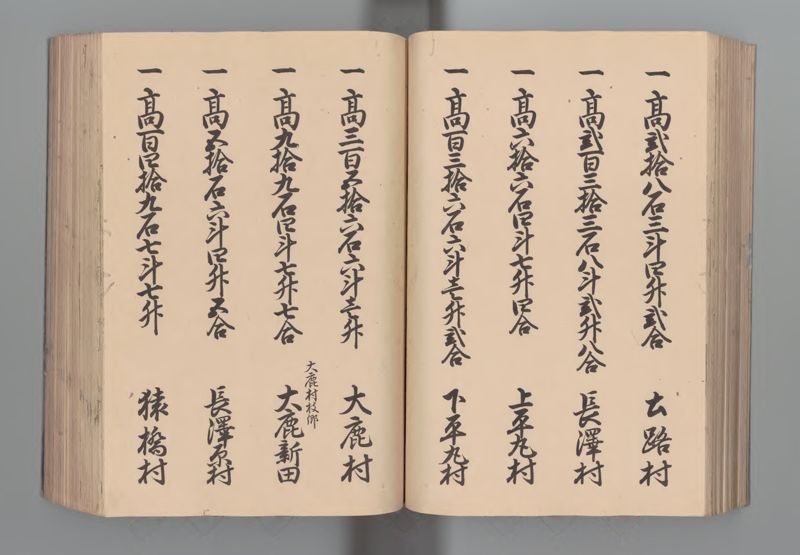 一 高弐拾八石三斗四升弐合 土路村
一 高弐百三拾三石八斗弐升八合 長澤村
一 高六拾六石四斗七升四合 上平丸村
一 高百三拾六石六斗壱升弐合 下平丸村
一 高三百五拾六石六斗壱升 大鹿村
大鹿村枝郷
一 高九拾九石四斗七升七合 大鹿新田
一 高五拾石六斗四升五合 長澤原村
一 高百四拾九石七斗七升 猿橋村